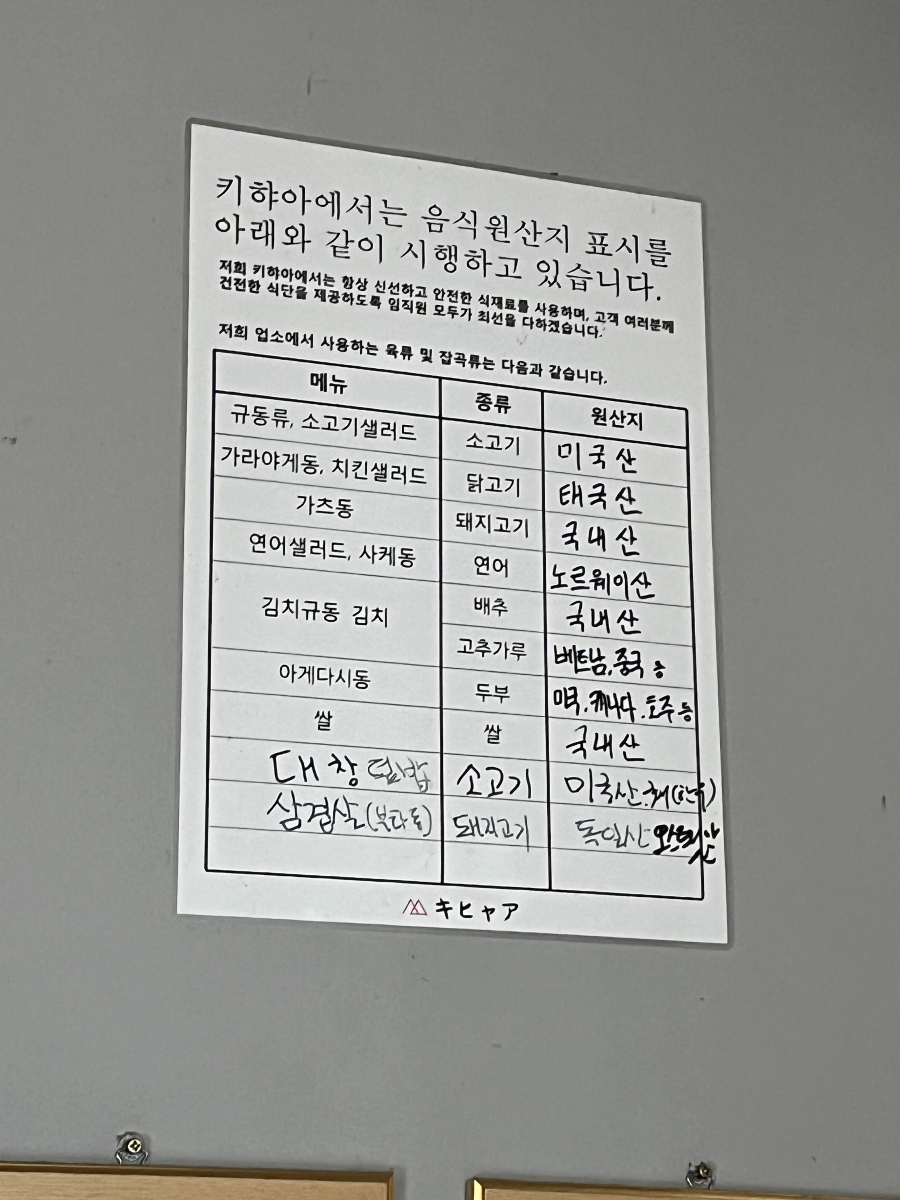 키햐아에서는 음식원산지 표시를
아래와 같이 시행하고 있습니다.
저희 키햐아에서는 항상 신선하고 안전한 식재료를 사용하며, 고객 여러분께
건전한 식단을 제공하도록 임직원 모두가 최선을 다하겠습니다.
저희 업소에서 사용하는 육류 및 잡곡류는 다음과 같습니다.
메뉴 종류 원산지
규동류, 소고기샐러드 소고기 미국산
가라야게동, 치킨샐러드 닭고기 태국산
가츠동 돼지고기 국내산
연어샐러드, 사케동 연어 노르웨이산
김치규동 김치 배추 국내산
고추가루 베트남,중국 등
아게다시동 두부 미국.캐나다.호주 등
쌀 쌀 국내산
대창덮밥 소고기 미국산
삼겹살(부타동) 돼지고기 독일산
キヒャア